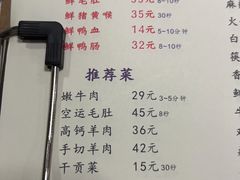 鲜毛肚 35元 8~10秒
鲜猪黄喉 35元 30秒
鲜鸭血 14元 5~10分钟
鲜鸭肠 32元 8~10秒
推荐菜
嫩牛肉 29元 3~5分钟
空运毛肚 45元 8秒
高钙羊肉 36元
手切羊肉 42元
干贡菜 15元 30秒
麻
火
白
筷
香